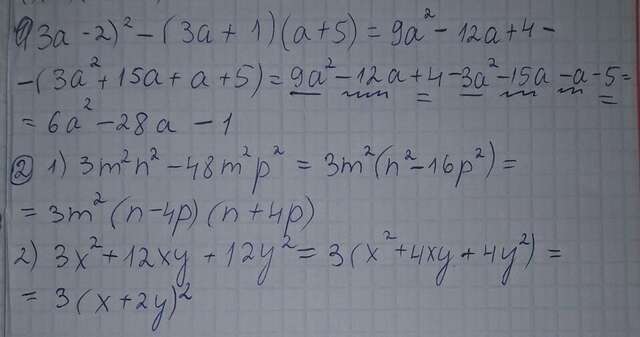 ① (3a - 2)² - (3a + 1)(a + 5) = 9a² - 12a + 4 -
- (3a² + 15a + a + 5) = 9a² - 12a + 4 - 3a² - 15a - a - 5 =
= 6a² - 28a - 1
② 1) 3m²n² - 48m²p² = 3m²(n² - 16p²) =
= 3m²(n - 4p)(n + 4p)
2) 3x² + 12xy + 12y² = 3(x² + 4xy + 4y²) =
= 3(x + 2y)²